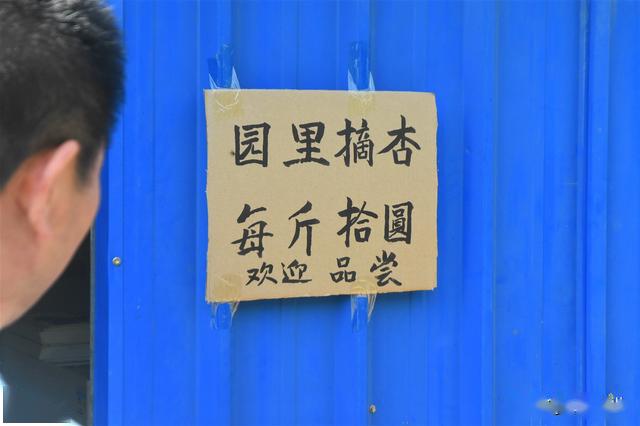 园里摘杏
每斤拾圓
欢迎品尝